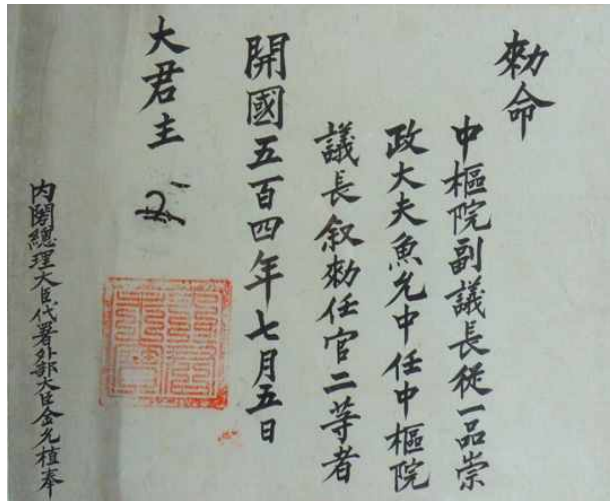 勅命
中樞院副議長從一品崇
政大夫魚允中任中樞院
議長敍勅任官二等者
開國五百四年七月五日
大君主
內閣總理大臣代署外部大臣金允植奉